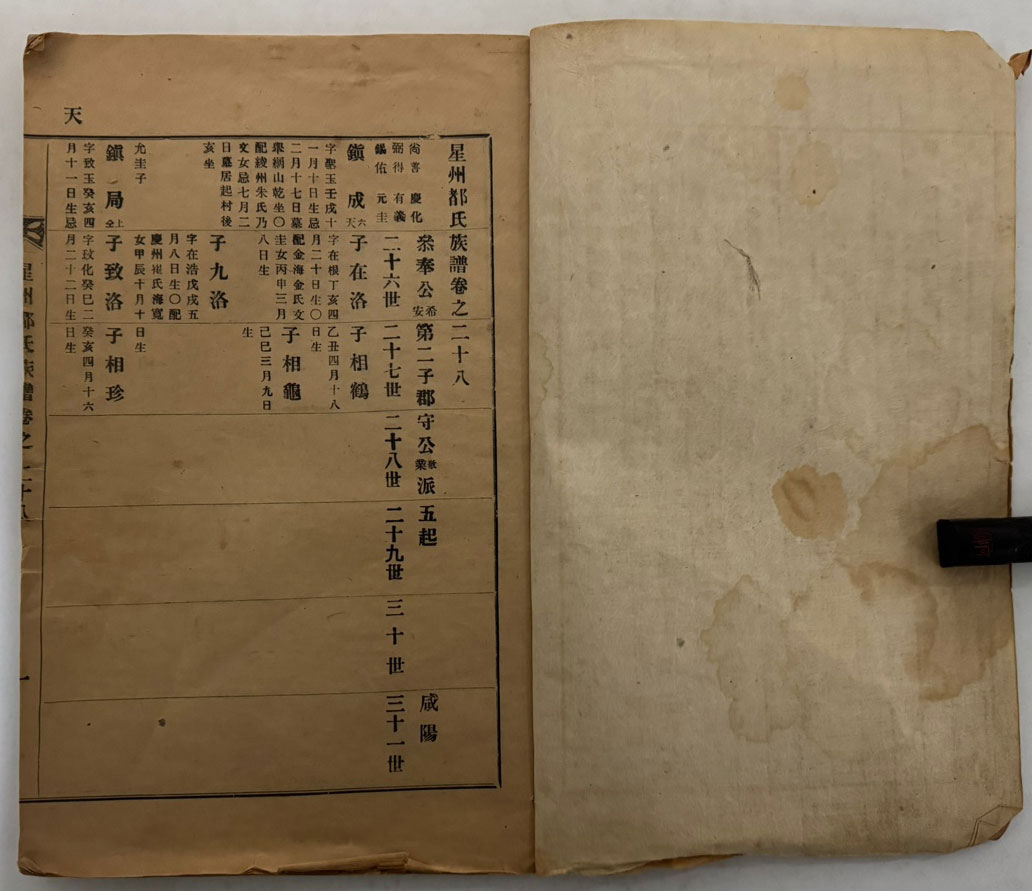 天
星州都氏族譜卷之二十八
叅奉公希安第二子郡守公敬業派五起 咸陽
尙書 慶化
弼得 有義
錫佑 元圭
二十六世 二十七世 二十八世 二十九世 三十世 三十一世
鎭成 六天
字聖玉壬戌十
一月十日生忌
二月十七日墓
舉網山乾坐○
配綾州朱氏乃
文女忌七月二
日墓居起村後
亥坐
子在洛
字在根丁亥四
月二十日生○
配金海金氏文
圭女丙申三月
八日生
子相鶴
乙丑四月十八
日生
子相龜
己巳三月九日
生
子九洛
字在浩戊戌五
月八日生○配
慶州崔氏海寬
女甲辰十月十
日生
允圭子
鎭局 上仝
字致玉癸亥四
月十一日生忌
子致洛
字玟化癸巳二
月二十二日生
子相珍
癸亥四月十六
日生
星州都氏族譜卷之二十八
一